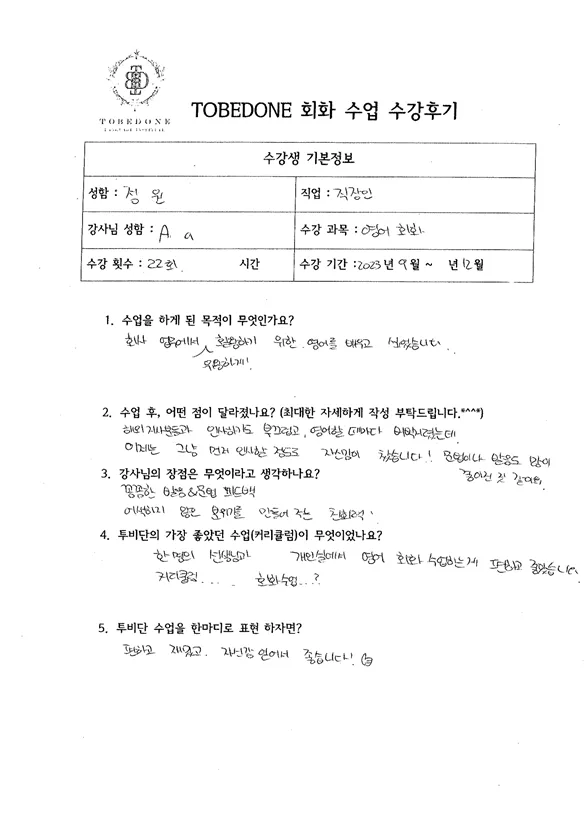 TOBEDONE
TOBEDONE 회화 수업 수강후기
수강생 기본정보
성함 : 정 원
직업 : 직장인
강사님 성함 : A a
수강 과목 : 영어 회화
수강 횟수 : 22회 시간
수강 기간 : 2023 년 9 월 ~ 년 12 월
1. 수업을 하게 된 목적이 무엇인가요?
회사 업무에서 활용하기 위한 영어를 배우고 싶었습니다.
유창하게!
2. 수업 후, 어떤 점이 달라졌나요? (최대한 자세하게 작성 부탁드립니다.*^^*)
해외 지사분들과 인사하기도 부끄럽고, 영어할 때마다 버벅거렸는데
이제는 그냥 먼저 인사할 정도로 자신감이 찼습니다! 문법이나 발음도 많이
좋아진 것 같아요.
3. 강사님의 장점은 무엇이라고 생각하나요?
꼼꼼한 발음&문법 피드백
어색하지 않은 분위기를 만들어 주는 친화력!
4. 투비단의 가장 좋았던 수업(커리큘럼)이 무엇이었나요?
한 명의 선생님과 개인실에서 영어 회화 수업하는게 편하고 좋았습니다.
커리큘럼.... 회화수업...?
5. 투비단 수업을 한마디로 표현 하자면?
편하고 재밌고. 자신감 얻어서 좋습니다!